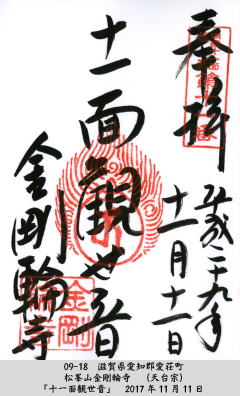 奉拝
平成二十九年
十一月十一日
十一面観世音
金剛輪寺
金剛
輪寺
09-18　滋賀県愛知郡愛荘町
松峯山金剛輪寺　（天台宗）
「十一面観世音」　2017年11月11日